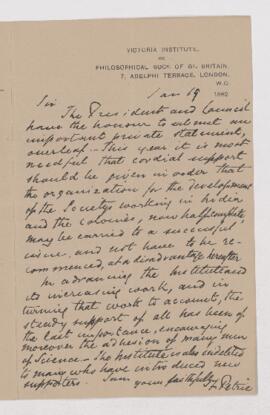 VICTORIA INSTITUTE,
OR
PHILOSOPHICAL SOCY. OF GT. BRITAIN.
7, ADELPHI TERRACE, LONDON,
W.C.
Jan 19 1882
Sir
The President and Council
have the honour to submit an
important private statement,
overleaf - This year it is most
needful that cordial support
should be given in order that
the organization for the development
of the Society's working in India
and the colonies, now half complete,
may be carried to a successful
issue, and not have to be re-
commenced, at a disadvantage hereafter
In advancing the Institute and
its increasing work, and in
turning that work to account, the
steady support of all has been of
the last importance, encouraging
moreover the adhesion of many men
of Science - The Institute is also indebted
to many who have introduced new
supporters. I am yours faithfully
F Petrie